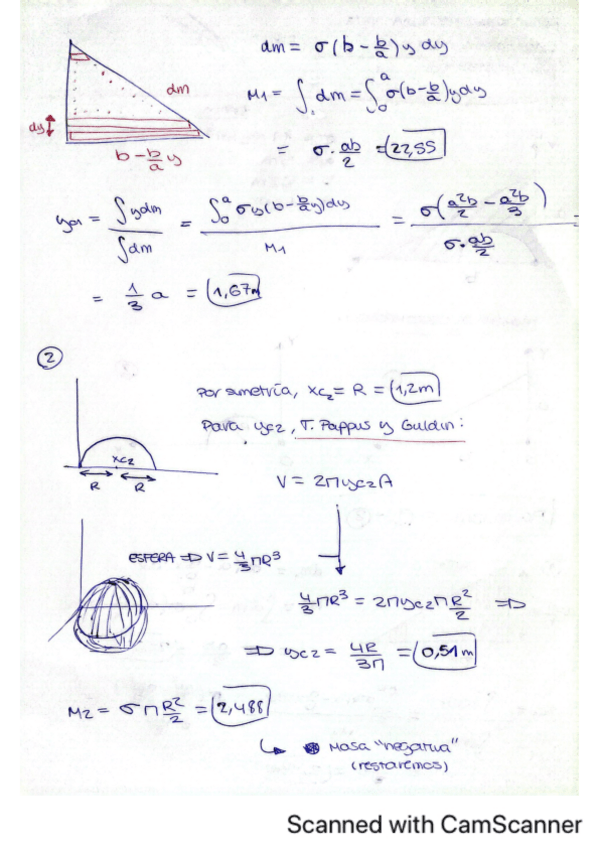 dm = σ(b - b/a)y dy
dm
M1 = ∫ dm = ∫₀ᵃ σ(b - b/a)y dy
dy
b - b/a y
= σ · ab/2 = 22,55
yG1 = ∫y dm / ∫dm = ∫₀ᵃ σy(b - b/a y)dy / M1 = σ(a²b/2 - a²b/3) / σ · ab/2 =
= 1/3 a = 1,67m
②
Por simetría, xc2 = R = 1,2m
Para yc2, T. Pappus y Guldin:
xc2
R R
V = 2π yc2 A
ESFERA ⇒ V = 4/3 πR³
4/3 πR³ = 2π yc2 π R²/2 ⇒
⇒ yc2 = 4R/3π = 0,51m
M2 = σ π R²/2 = 2,488
↳ Masa "negativa"
(restaremos)
Scanned with CamScanner